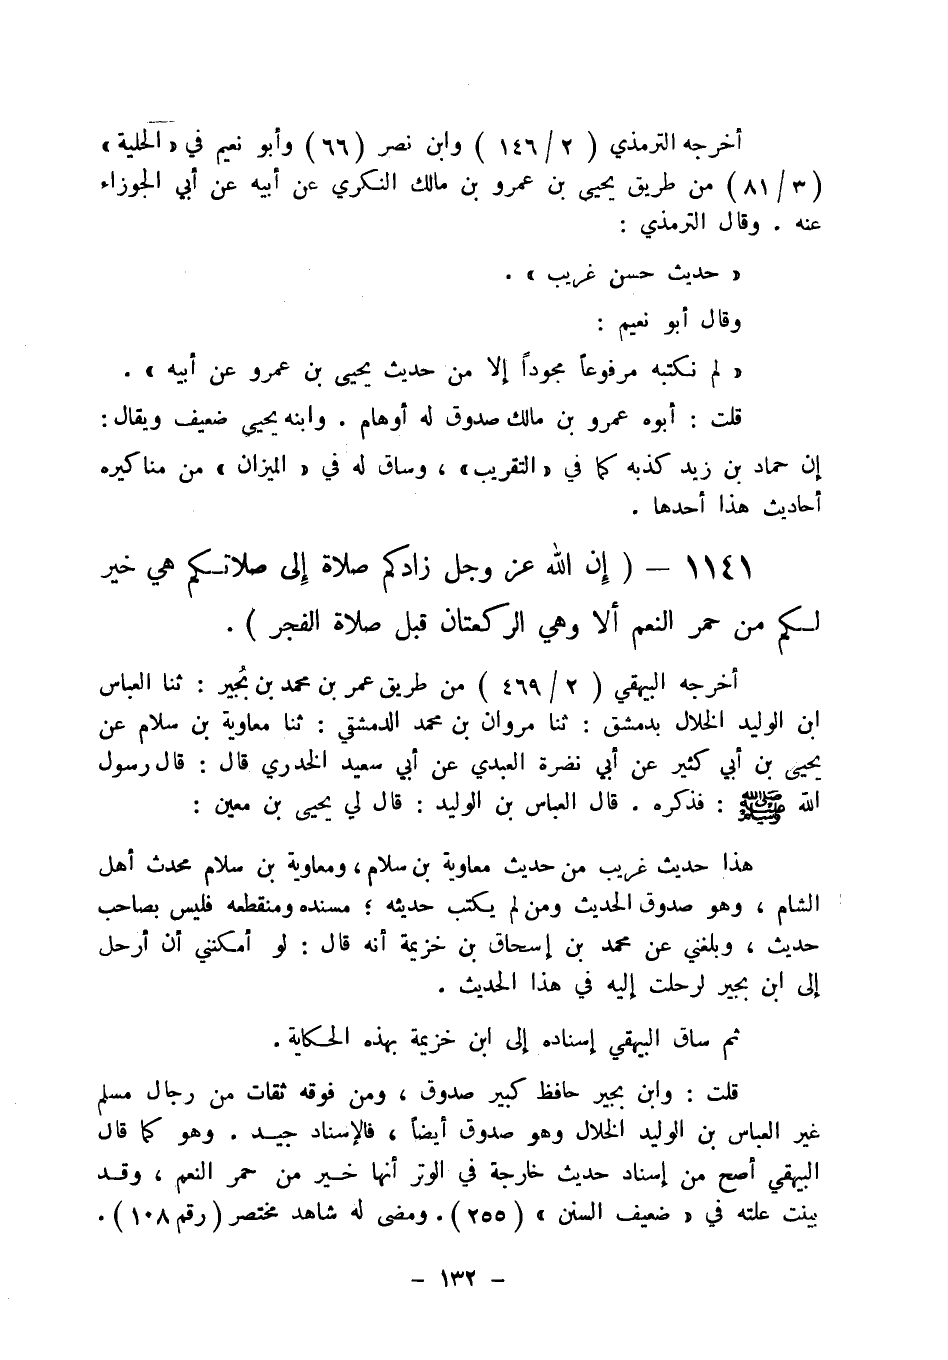 أخرجه الترمذي ( ٢ / ١٤٦ ) وابن نصر (٦٦) وأبو نعيم في « الحلية »
( ٣ / ٨١ ) من طريق يحيى بن عمرو بن مالك النكري عن أبيه عن أبي الجوزاء
عنه . وقال الترمذي :
« حديث حسن غريب » .
وقال أبو نعيم :
« لم نكتبه مرفوعاً مجوداً إلا من حديث يحيى بن عمرو عن أبيه » .
قلت : أبوه عمرو بن مالك صدوق له أوهام . وابنه يحيى ضعيف ويقال :
إن حماد بن زيد كذبه كما في « التقريب » ، وساق له في « الميزان » من مناكيره
أحاديث هذا أحدها .
١١٤١ – ( إن الله عز وجل زادكم صلاة إلى صلاتكم هي خير
لكم من حمر النعم ألا وهي الركعتان قبل صلاة الفجر ) .
أخرجه البيهقي ( ٢ / ٤٦٩ ) من طريق عمر بن محمد بن بُجير : ثنا العباس
ابن الوليد الخلال بدمشق : ثنا مروان بن محمد الدمشقي : ثنا معاوية بن سلام عن
يحيى بن أبي كثير عن أبي نضرة العبدي عن أبي سعيد الخدري قال : قال رسول
الله ﷺ : فذكره . قال العباس بن الوليد : قال لي يحيى بن معين :
هذا حديث غريب من حديث معاوية بن سلام ، ومعاوية بن سلام محدث أهل
الشام ، وهو صدوق الحديث ومن لم يكتب حديثه ؛ مسنده ومنقطعه فليس بصاحب
حديث ، وبلغني عن محمد بن إسحاق بن خزيمة أنه قال : لو أمكنني أن أرحل
إلى ابن بجير لرحلت إليه في هذا الحديث .
ثم ساق البيهقي إسناده إلى ابن خزيمة بهذه الحكاية .
قلت : وابن بجير حافظ كبير صدوق ، ومن فوقه ثقات من رجال مسلم
غير العباس بن الوليد الخلال وهو صدوق أيضاً ، فالإسناد جيد . وهو كما قال
البيهقي أصح من إسناد حديث خارجة في الوتر أنها خير من حمر النعم ، وقد
بينت علته في « ضعيف السنن » (٢٥٥). ومضى له شاهد مختصر (رقم ١٠٨) .
– ١٣٢ –